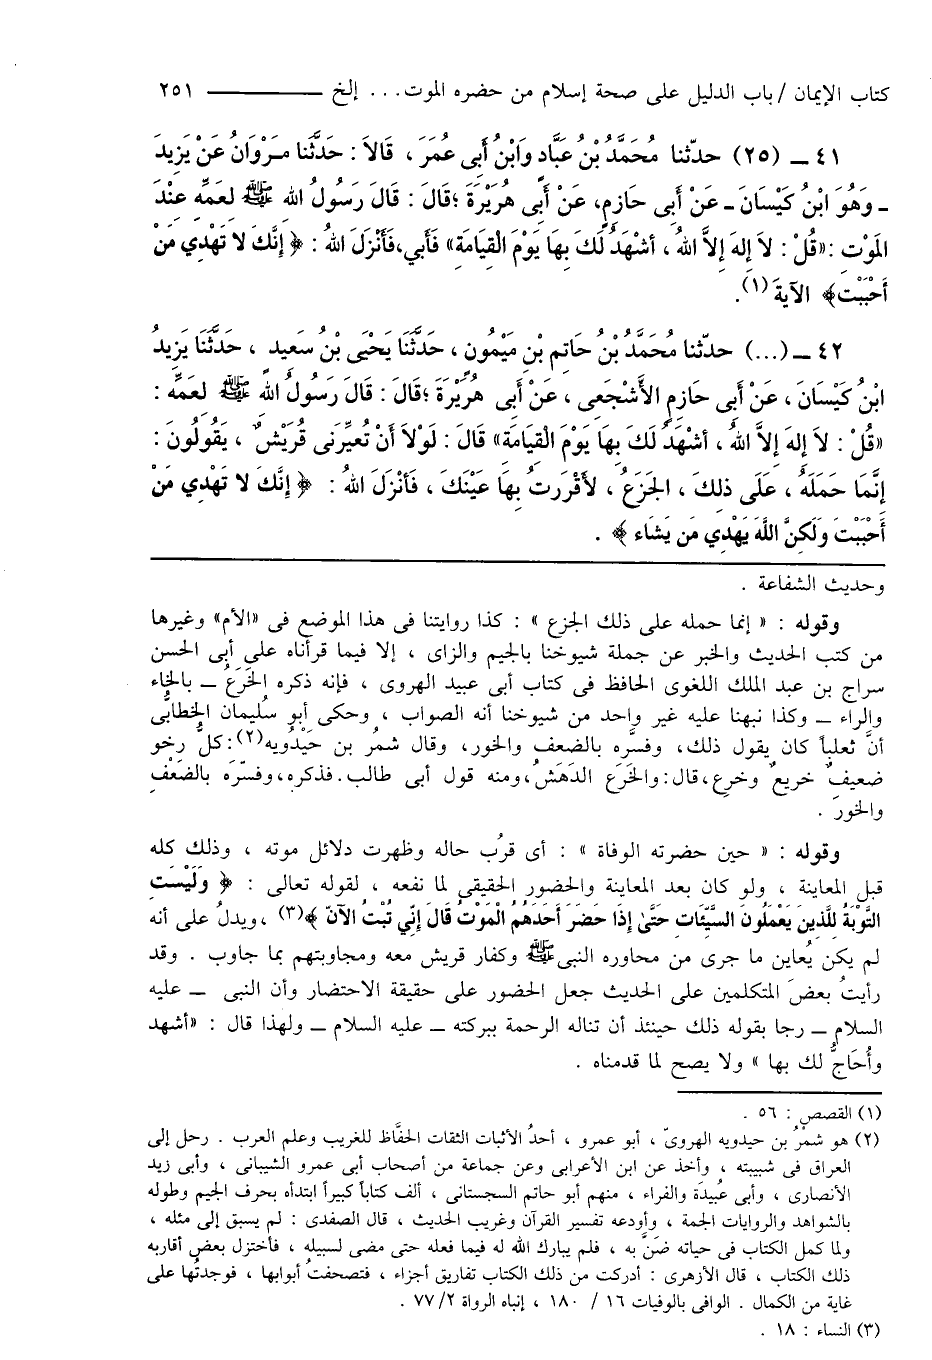 كتاب الإيمان / باب الدليل على صحة إسلام من حضره الموت ... إلخ ــــــــــ ٢٥١
٤١ ــ (٢٥) حدّثنا مُحَمَّدُ بْنُ عَبَّادٍ وَابْنُ أَبِى عُمَرَ ، قَالاَ : حَدَّثَنَا مَرْوَانُ عَنْ يَزِيدَ
ـ وَهُوَ ابْنُ كَيْسَانَ ـ عَنْ أَبِى حَازِمٍ، عَنْ أَبِى هُرَيْرَةَ ؛ قَالَ : قَالَ رَسُولُ اللهِ ﷺ لِعَمِّهِ عِنْدَ
الْمَوْتِ : «قُلْ : لاَ إِلَهَ إِلاَّ اللهُ ، أَشْهَدُ لَكَ بِهَا يَوْمَ الْقِيَامَةِ» فَأَبَى، فَأَنْزَلَ اللهُ : ﴿ إِنَّكَ لا تَهْدِي مَنْ
أَحْبَبْتَ﴾ الآيَةَ (١).
٤٢ ــ (...) حدّثنا مُحَمَّدُ بْنُ حَاتِمِ بْنِ مَيْمُونٍ ، حَدَّثَنَا يَحْيَى بْنُ سَعِيدٍ ، حَدَّثَنَا يَزِيدُ
ابْنُ كَيْسَانَ ، عَنْ أَبِى حَازِمٍ الأَشْجَعِى ، عَنْ أَبِى هُرَيْرَةَ ؛ قَالَ : قَالَ رَسُولُ اللهِ ﷺ لِعَمِّهِ :
«قُلْ : لاَ إِلَهَ إِلاَّ اللهُ ، أَشْهَدُ لَكَ بِهَا يَوْمَ الْقِيَامَةِ» قَالَ : لَوْلاَ أَنْ تُعَيِّرَنِى قُرَيْشٌ ، يَقُولُونَ :
إِنَّمَا حَمَلَهُ ، عَلَى ذلِكَ ، الْجَزَعُ ، لأَقْرَرْتُ بِهَا عَيْنَكَ ، فَأَنْزَلَ اللهُ : ﴿ إِنَّكَ لا تَهْدِي مَنْ
أَحْبَبْتَ وَلَكِنَّ اللَّهَ يَهْدِي مَن يَشَاء ﴾ .
وحديث الشفاعة .
وقوله : « إنما حمله على ذلك الجزع » : كذا روايتنا فى هذا الموضع فى «الأم» وغيرها
من كتب الحديث والخبر عن جملة شيوخنا بالجيم والزاى ، إلا فيما قرأناه على أبى الحسن
سراج بن عبد الملك اللغوى الحافظ فى كتاب أبى عبيد الهروى ، فإنه ذكره الخَرَعُ ــ بالخاء
والراء ــ وكذا نبهنا عليه غير واحد من شيوخنا أنه الصواب ، وحكى أبو سُليمان الخطابى
أنَّ ثعلباً كان يقول ذلك، وفسَّره بالضعف والخور، وقال شمُر بن حَيْدُويه(٢):كلُّ رخو
ضعيفٌ خريعٌ وخرِع، قال: والخَرَع الدَهَشُ، ومنه قول أبى طالب. فذكره، وفسّرَه بالضَعْف
والخورَ .
وقوله : « حين حضرته الوفاة » : أى قرُب حاله وظهرت دلائل موته ، وذلك كله
قبل المعاينة ، ولو كان بعد المعاينة والحضور الحقيقى لما نفعه ، لقوله تعالى : ﴿ وَلَيْسَتِ
التَّوْبَةُ لِلَّذِينَ يَعْمَلُونَ السَّيِّئَاتِ حَتَّىٰ إِذَا حَضَرَ أَحَدَهُمُ الْمَوْتُ قَالَ إِنِّي تُبْتُ الآنَ ﴾(٣) ، ويدلُ على أنه
لم يكن يُعاين ما جرى من محاوره النبى ﷺ وكفار قريش معه ومجاوبتهم بما جاوب . وقد
رأيتُ بعضَ المتكلمين على الحديث جعل الحضور على حقيقة الاحتضار وأن النبى ــ عليه
السلام ــ رجا بقوله ذلك حينئذ أن تناله الرحمة ببركته ــ عليه السلام ــ ولهذا قال : «أشهد
وأُحَاجُّ لك بها » ولا يصح لما قدمناه .
(١) القصص : ٥٦ .
(٢) هو شَمْرُ بن حيدويه الهروىّ ، أبو عمرو ، أحدُ الأثبات الثقات الحفَّاظ للغريب وعلم العرب . رحل إلى
العراق فى شبيبته ، وأخذ عن ابن الأعرابى وعن جماعة من أصحاب أبى عمرو الشيبانى ، وأبى زيد
الأنصارى ، وأبى عُبيدَة والفراء ، منهم أبو حاتم السجستانى ، ألف كتاباً كبيراً ابتدأه بحرف الجيم وطوله
بالشواهد والروايات الجمة ، وأودعه تفسير القرآن وغريب الحديث ، قال الصفدى : لم يسبق إلى مثله ،
ولما كمل الكتاب فى حياته ضَنَّ به ، فلم يبارك الله له فيما فعله حتى مضى لسبيله ، فأختزل بعض أقاربه
ذلك الكتاب ، قال الأزهرى : أدركت من ذلك الكتاب تفاريق أجزاء ، فتصحفتُ أبوابها ، فوجدتُها على
غاية من الكمال . الوافى بالوفيات ١٦ / ١٨٠ ، إنباه الرواة ٢/ ٧٧ .
(٣) النساء : ١٨ .